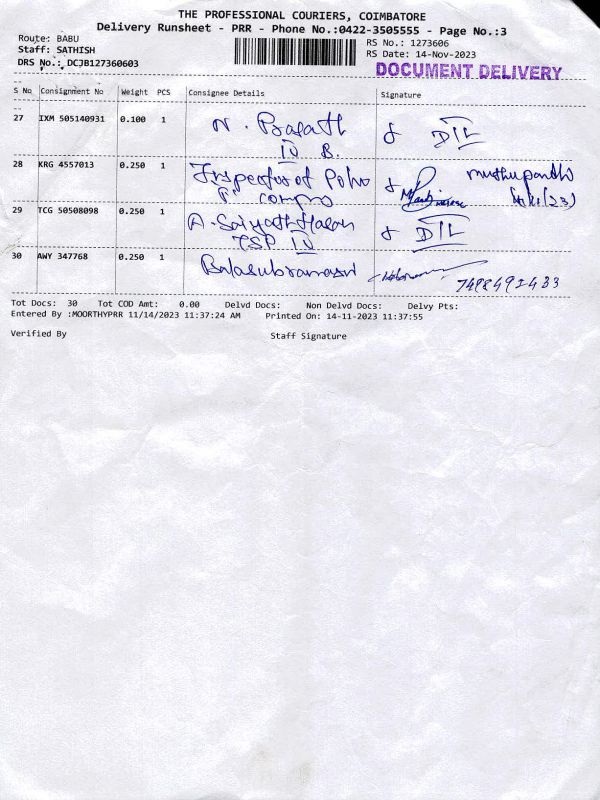 THE PROFESSIONAL COURIERS, COIMBATORE
Delivery Runsheet - PRR - Phone No.:0422-3505555 - Page No.:3
Route: BABU
Staff: SATHISH
DRS No.: DCJB127360603
RS No.: 1273606
RS Date: 14-Nov-2023
DOCUMENT DELIVERY
S No Consignment No Weight PCS Consignee Details Signature
27 IXM 505140931 0.100 1 N. Barath
IV B.
28 KRG 4557013 0.250 1 Inspector of
29 TCG 50508098 0.250 1 A.
TSP IV
30 AWY 347768 0.250 1 7498491433
Tot Docs: 30 Tot COD Amt: 0.00 Delvd Docs: Non Delvd Docs: Delvy Pts:
Entered By :MOORTHYPRR 11/14/2023 11:37:24 AM Printed On: 14-11-2023 11:37:55
Verified By Staff Signature